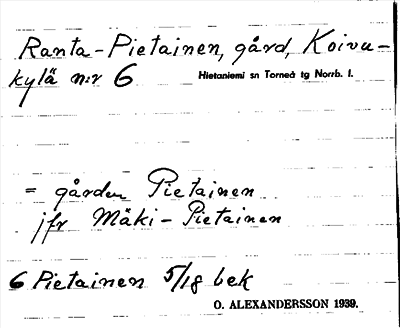 Ranta-Pietainen, gård, Koivu-
kylä n:r 6 Hietaniemi sn Torneå tg Norrb. l.
= gården Pietainen
jfr Mäki-Pietainen
6 Pietainen 5/18 bek
O. ALEXANDERSSON 1939.